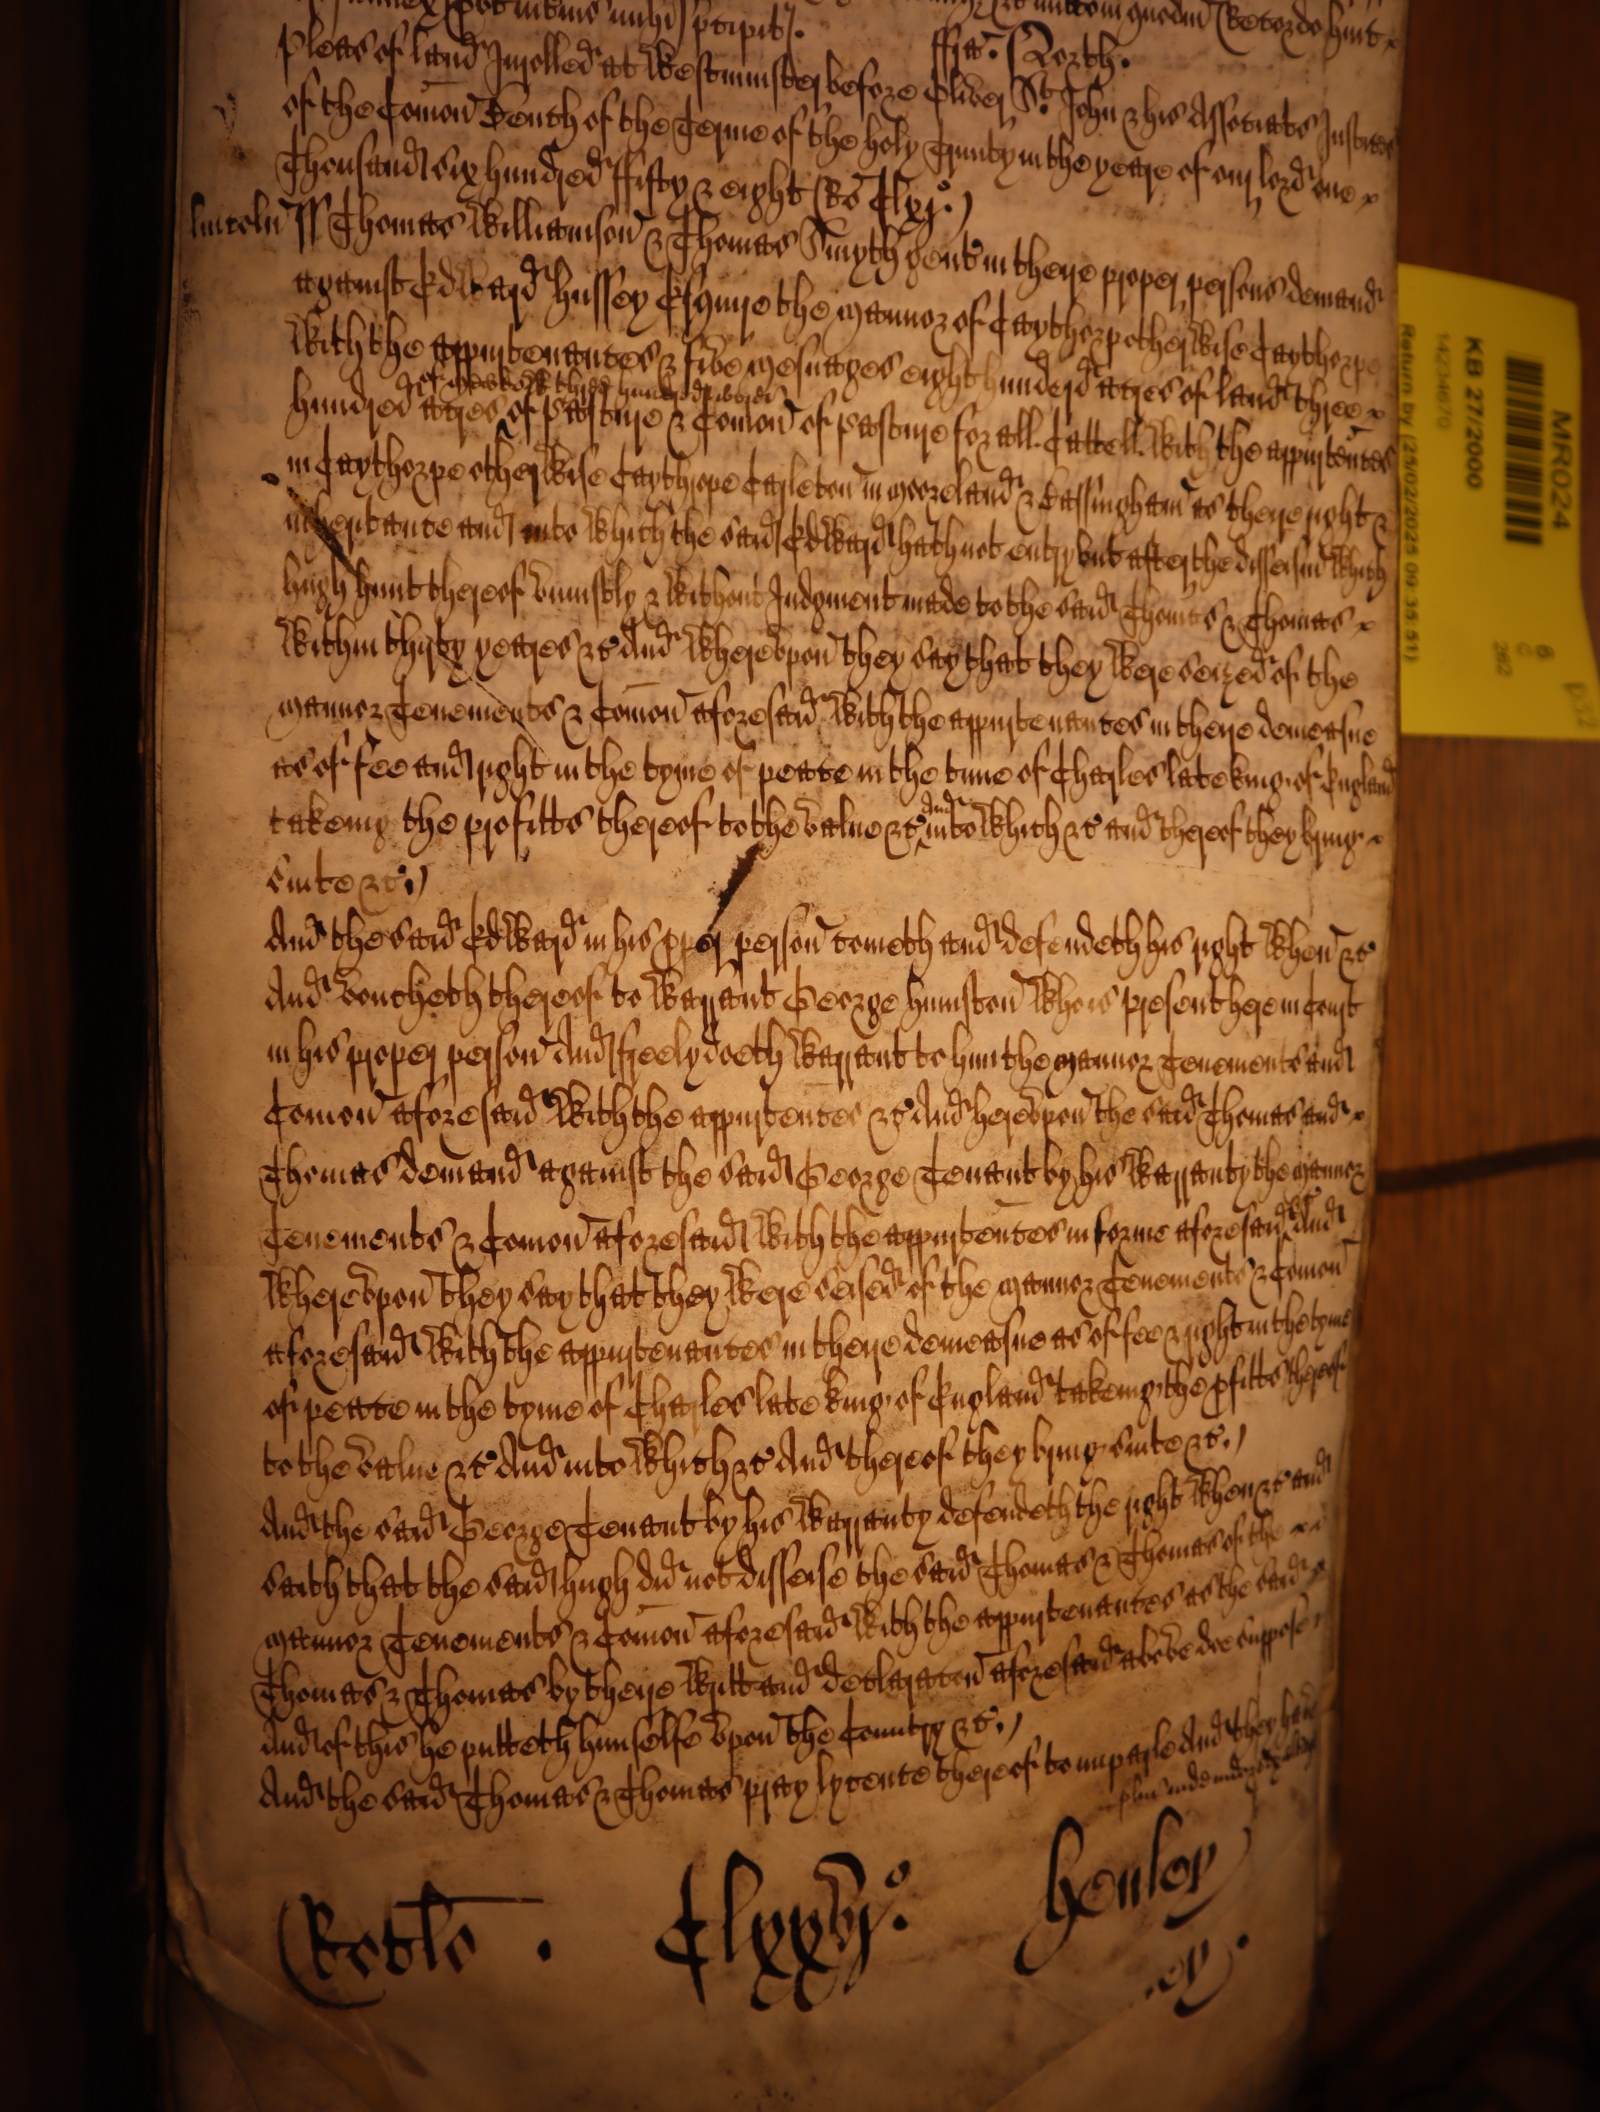 ffra: North.
Pleas of land Inrolled at Westminster before Oliver St John & his Assotiats Justices
of the Comon Bench of the Terme of the holy Trinity in the yeare of our lord one
Thousand six hundred fifty & eight Ro Clxj.o
lincoln ss Thomas Williamson & Thomas Smyth gent in there proper persons demand
against Edward Hussey Esquire the mannor of Caythorpe otherwise Caythorpe
With the appurtenantes & five mesuages eight hunderd acres of land three
hundred acres of pasture & Comon of pasture for all Cattell With the appurtentes
in Caythorpe otherwise Caythrope Carleton in Moorland & Bassingham as there right &
inheritante and into Which the said Edward hath not entry but after the disseisin Which
hugh hunt thereof uniustly & Without Judgment made to the said Thomas & Thomas
Within thirty yeares &c And Whereupon they say that they Were seized of the
mannor Tenements & Comon aforesaid With the appurtenantes in there demeasne
as of fee and right in the tyme of peace in the time of Charles late king of England
takeing the profitts thereof to the value &c And into Which &c and thereof they bring
suite &c
And the said Edward in his pper person cometh and defendeth his right When &c
And voucheth thereof to Warrant George humston Who is present here in Court
in his proper person And freely doeth Warrant to him the mannor Tenements and
Comon aforesaid With the appurtentes &c And hereupon the said Thomas and
Thomas demand against the said George Tenant by his Warranty the mannor
Tenements & Comon aforesaid With the appurtentes in forme aforesaid &c And
Whereupon they say that they Were seised of the mannor Tenements & Comon
aforesaid With the appurtenantes in there demeasne as of fee & right in the tyme
of peace in the tyme of Charles late king of England takeing the pfitts thereof
to the value &c And into Which &c And thereof they bring suite &c
And the said George Tenant by his Warranty defendeth the right When &c and
saith that the said hugh did not disseise the said Thomas & Thomas of the
mannor Tenements & Comon aforesaid With the appurtenantes as the said
Thomas & Thomas by there Writt and declaraton aforesaid above doe suppose
And of this he putteth himselfe upon the Country &c
And the said Thomas & Thomas pray lycence thereof to imparle And they have
Rotlo. Clxxvj.o Henley
MR024
KB 27/2000
14234670
Return by (25/02/2025 09:35:51)
6
C
262